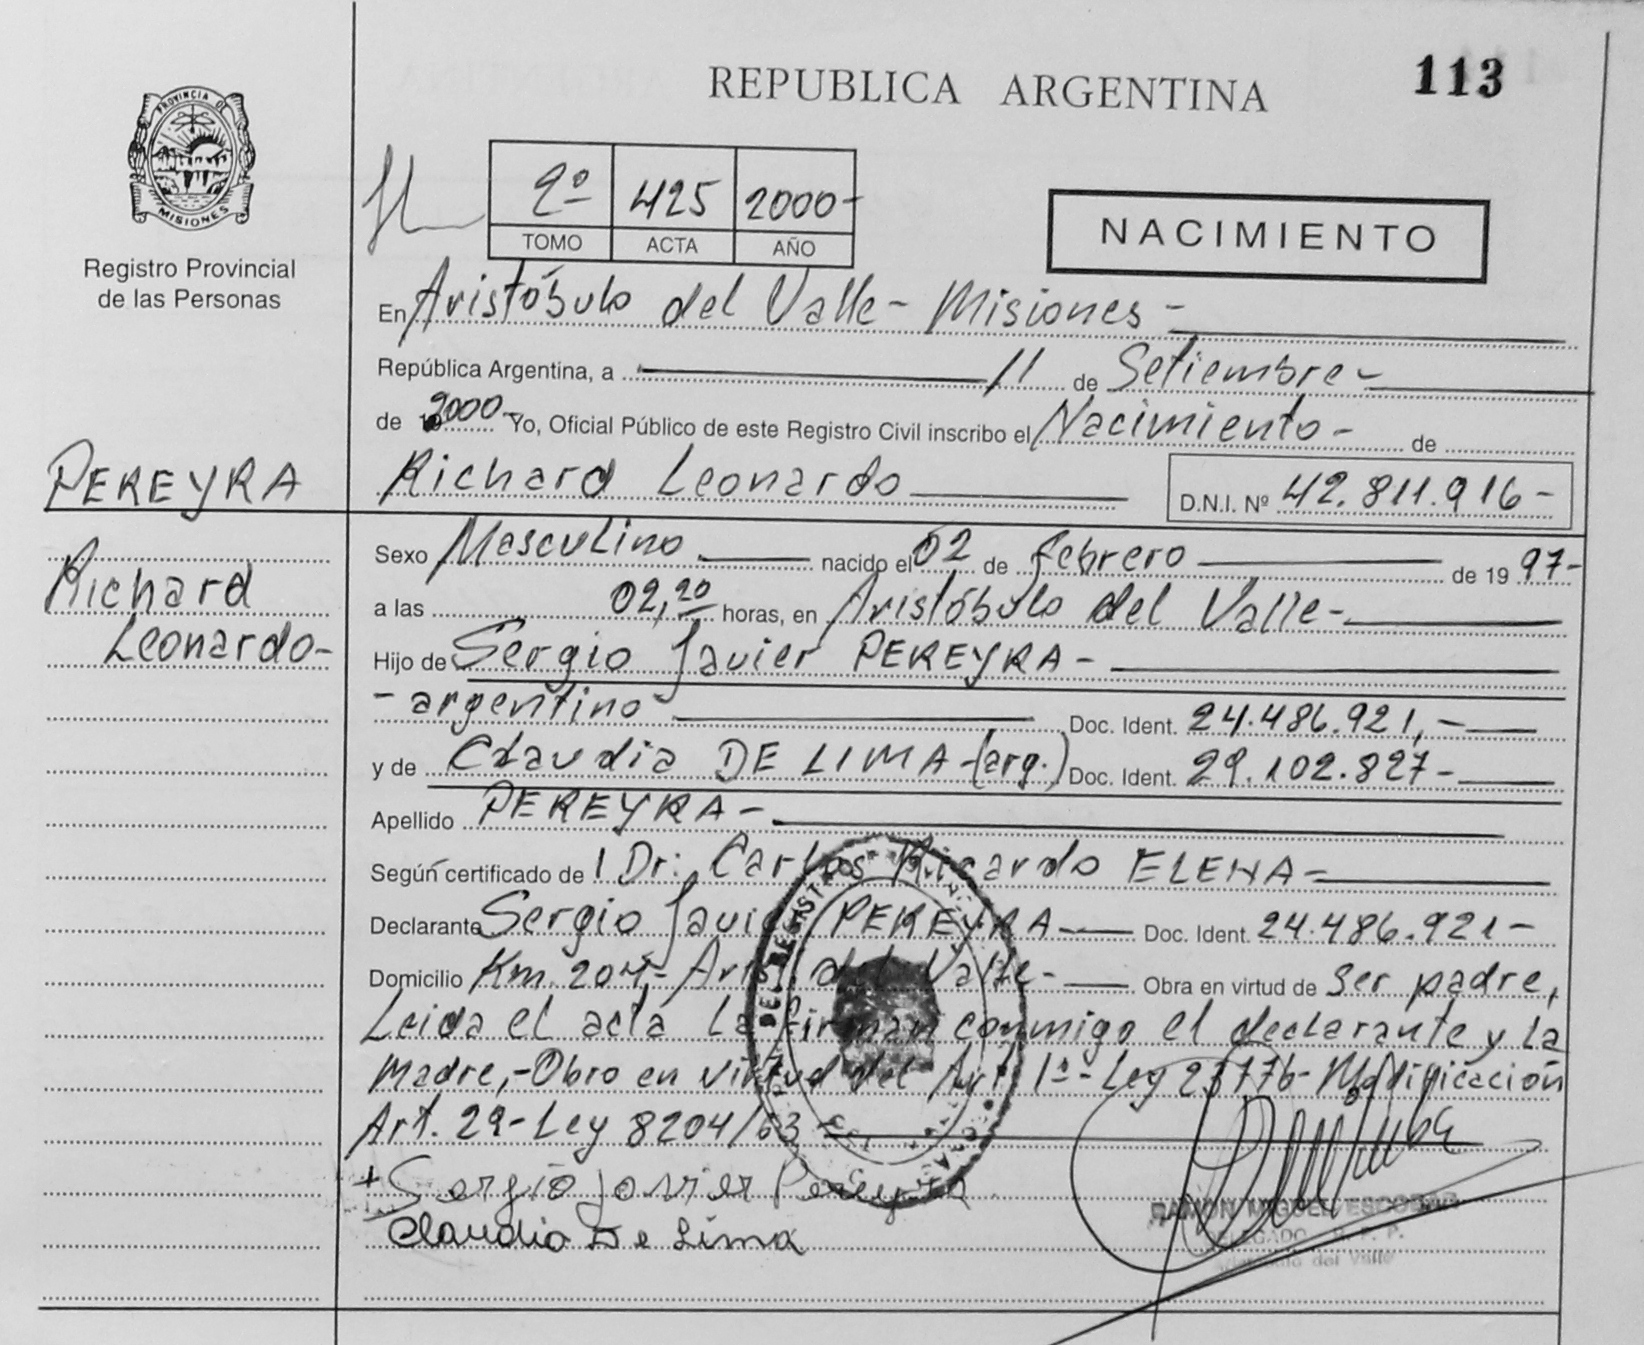 REPUBLICA ARGENTINA
113
PROVINCIA DE
MISIONES
Registro Provincial
de las Personas
2º 425 2000-
TOMO ACTA AÑO
NACIMIENTO
En Aristóbulo del Valle - Misiones -
República Argentina, a 11 de Setiembre -
de 2000 - Yo, Oficial Público de este Registro Civil inscribo el Nacimiento - de
Richard Leonardo D.N.I. Nº 42.811.916-
PEREYRA
Richard
Leonardo-
Sexo Masculino nacido el 02 de febrero de 19 97-
a las 02,20 horas, en Aristóbulo del Valle-
Hijo de Sergio Javier PEREYRA -
- argentino Doc. Ident. 24.486.921,-
y de Claudia DE LIMA -(arg.) Doc. Ident. 29.102.827-
Apellido PEREYRA -
Según certificado de 1 Dr: Carlos Ricardo ELENA-
Declarante Sergio Javier PEREYRA Doc. Ident. 24.486.921-
Domicilio Km. 204,- Arist. del Valle- Obra en virtud de ser padre,
Leida el acta La firman conmigo el declarante y La
Madre,-Obro en virtud del Art. 1º-Ley 23776-Modificación
Art. 29-Ley 8204/63
+ Sergio Javier Pereyra
Claudia De Lima
RAMON MIGUEL ESCOBAR
DELEGADO R. P. P.
del Valle